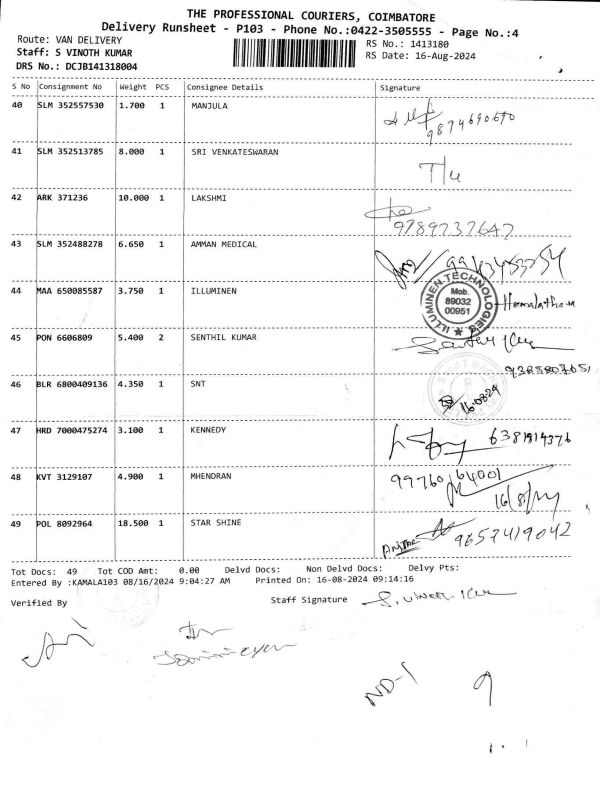 THE PROFESSIONAL COURIERS, COIMBATORE
Delivery Runsheet - P103 - Phone No.:0422-3505555 - Page No.:4
Route: VAN DELIVERY
RS No.: 1413180
Staff: S VINOTH KUMAR
RS Date: 16-Aug-2024
DRS No.: DCJB141318004
S No Consignment No Weight PCS Consignee Details Signature
40 SLM 352557530 1.700 1 MANJULA
9874690690
41 SLM 352513785 8.000 1 SRI VENKATESWARAN
42 ARK 371236 10.000 1 LAKSHMI
9789737647
43 SLM 352488278 6.650 1 AMMAN MEDICAL
44 MAA 650085587 3.750 1 ILLUMINEN
ILLUMINEN TECHNOLOGIES
Mob.
89032
00951
45 PON 6606809 5.400 2 SENTHIL KUMAR
46 BLR 6800409136 4.350 1 SNT
16.08.24
47 HRD 7000475274 3.100 1 KENNEDY
6381914376
48 KVT 3129107 4.900 1 MHENDRAN
99760 64001
16/8/24
49 POL 8092964 18.500 1 STAR SHINE
9657419042
Tot Docs: 49 Tot COD Amt: 0.00 Delvd Docs: Non Delvd Docs: Delvy Pts:
Entered By :KAMALA103 08/16/2024 9:04:27 AM Printed On: 16-08-2024 09:14:16
Verified By
Staff Signature S. Vinoth Kum
ND-1
9